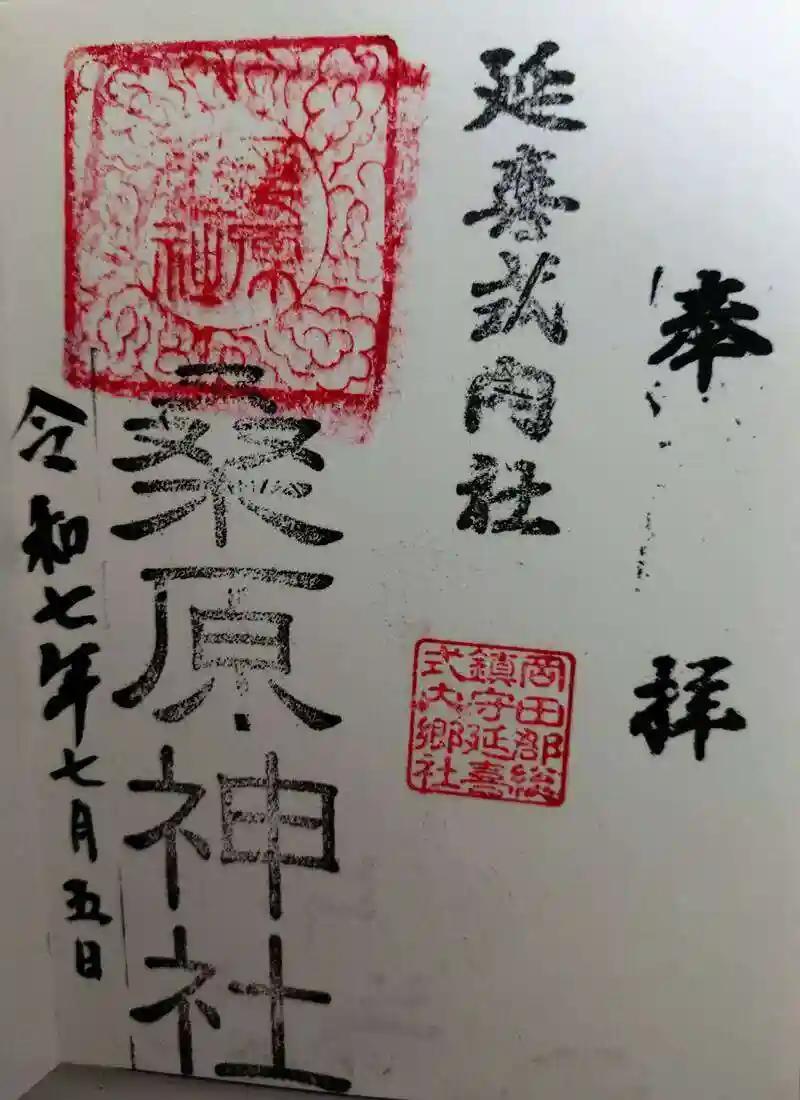 奉拝
延喜式内社
岡田郡総
鎮守延喜
式内郷社
桑原神社
桑原
神社
令和七年七月五日